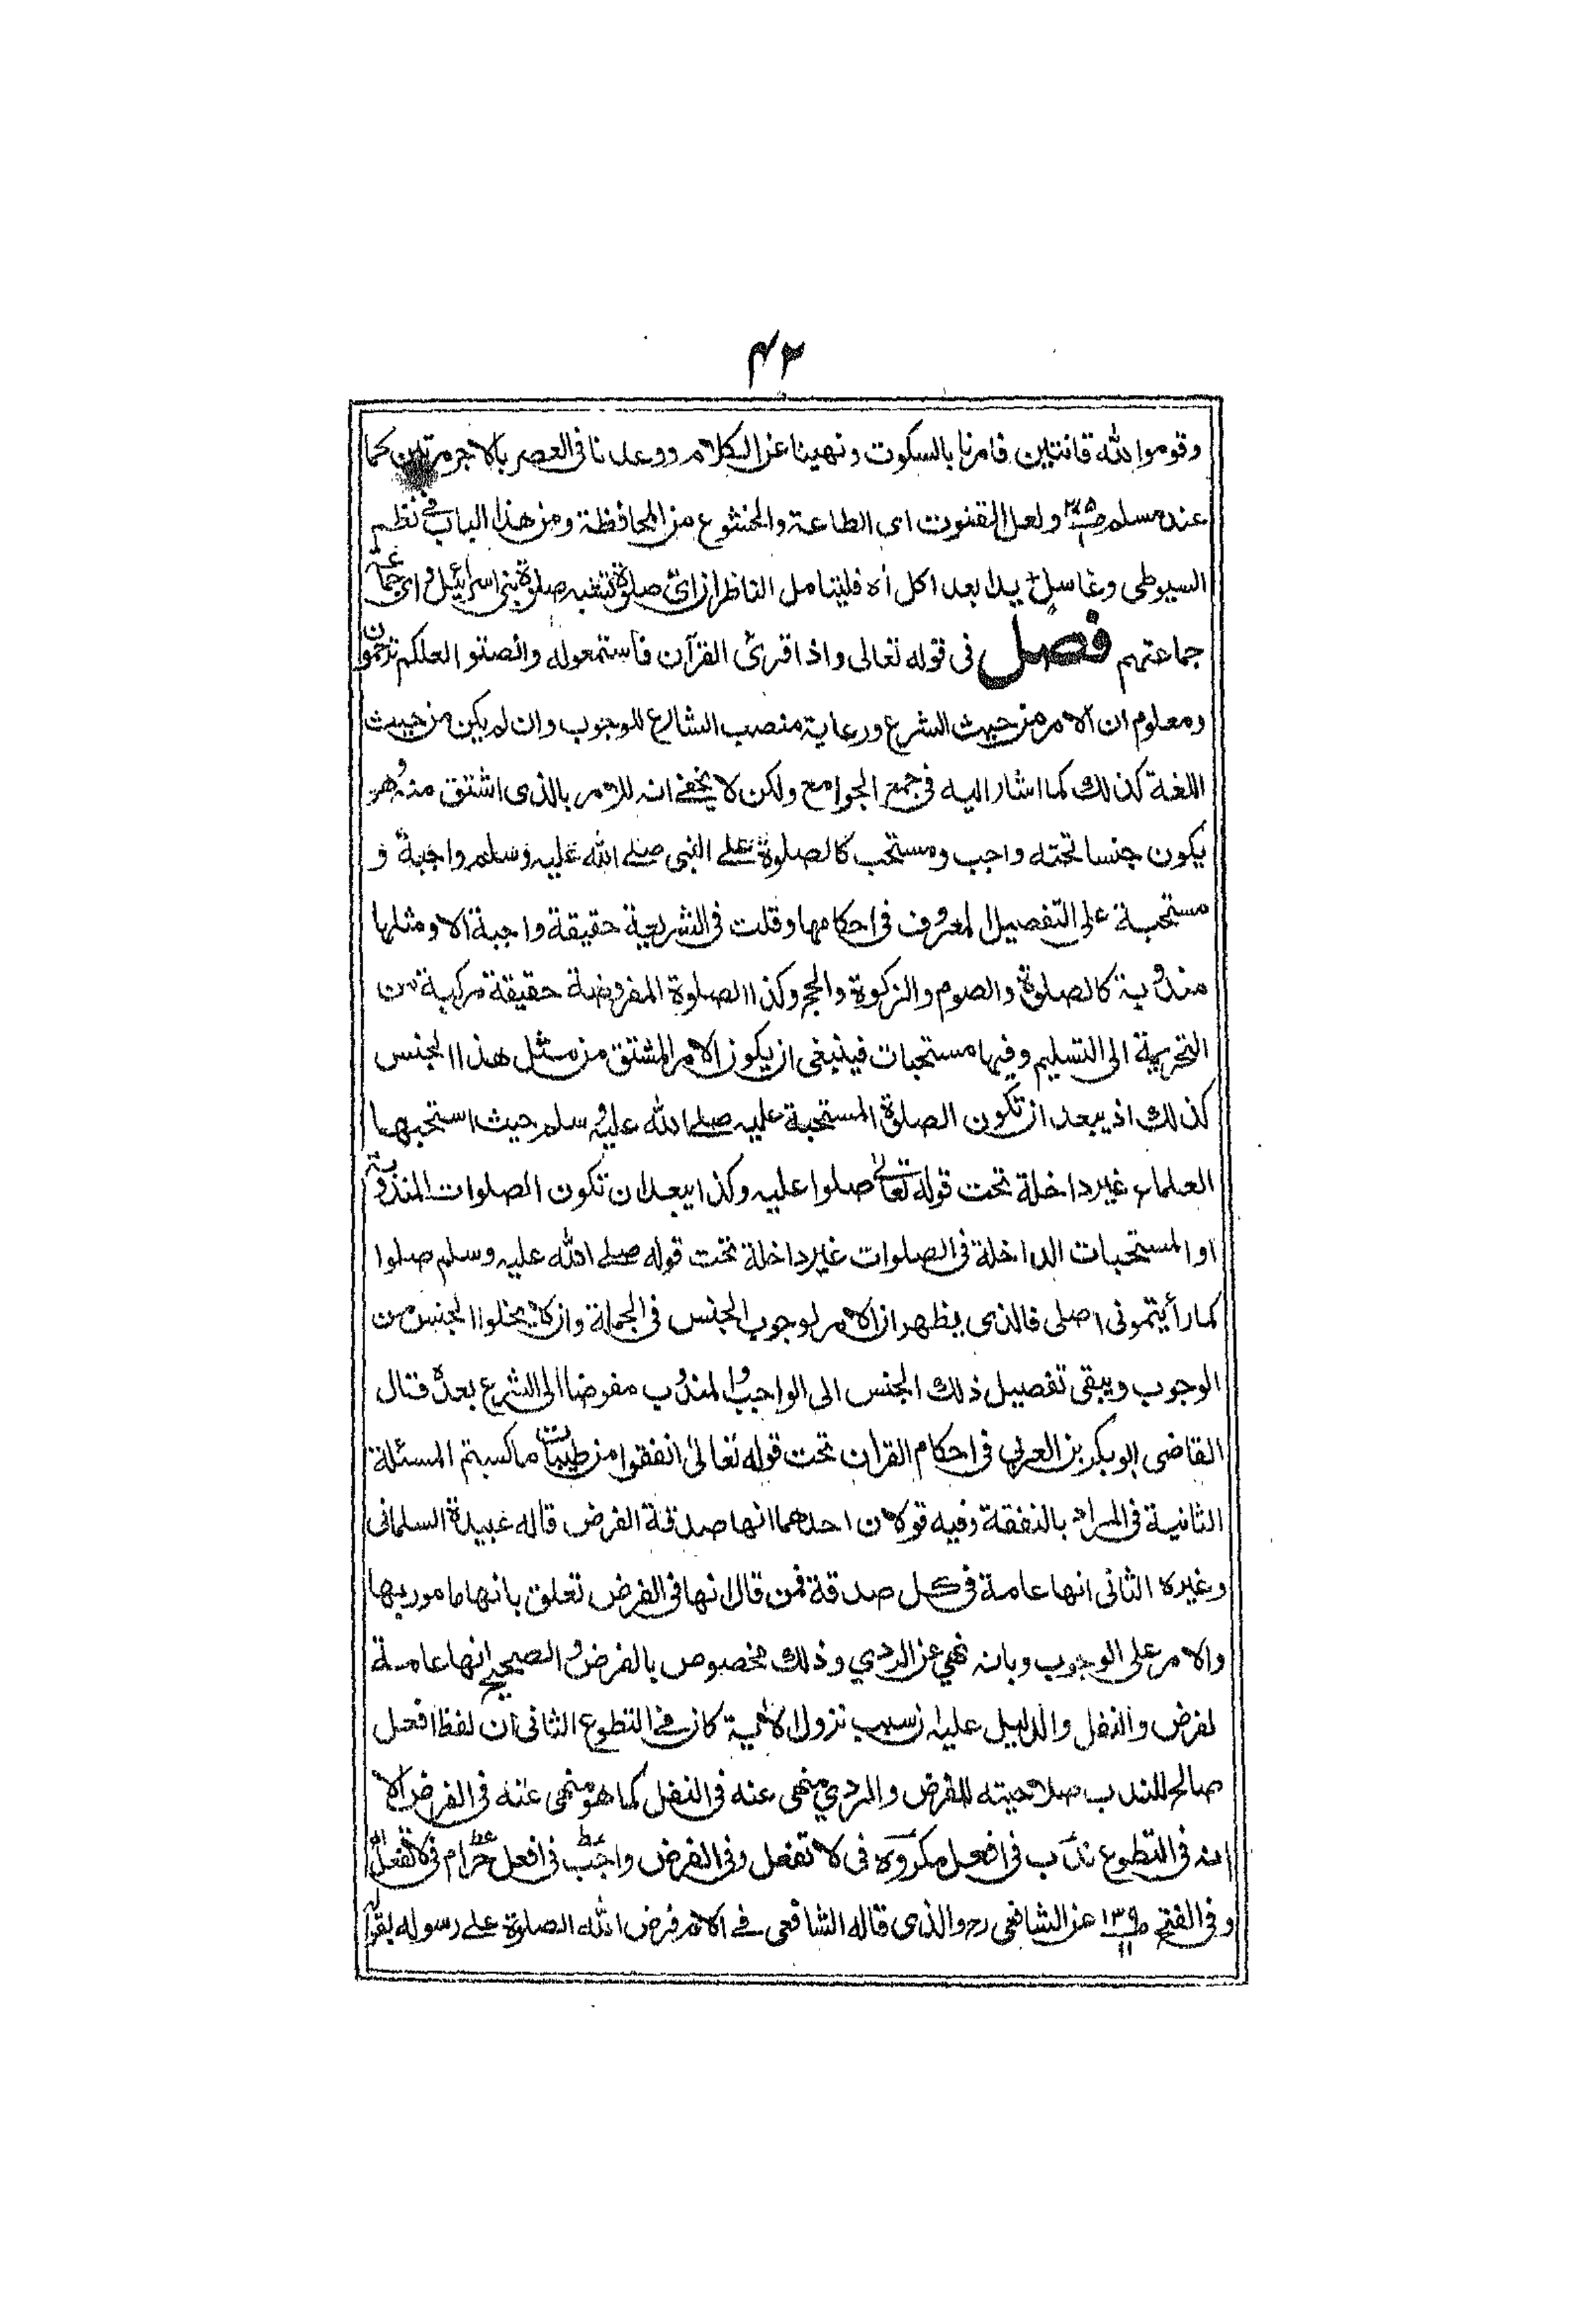 ۴۲
وقوموا لله قانتين فامرنا بالسكوت ونهينا عن الكلام ووعدنا فى العصر بالاجر مرتين كما
عند مسلم ولعل القنوت اى الطاعة والخشوع من المحافظة ومن هذا الباب فى نظم
السيوطى وغاسل يدا بعد اكل اه فليتامل الناظر ان اى صلوة تشبه صلوة بنى اسرائيل واى جماعة
جماعتهم فصل فى قوله تعالى واذا قرئ القرآن فاستمعوا له وانصتوا لعلكم ترحمون
ومعلوم ان الامر من حيث الشرع ورعاية منصب الشارع للوجوب وان لم يكن من حيث
اللغة كذلك كما اشار اليه فى جمع الجوامع ولكن لا يخفى انه للامر بالذى اشتق منه وهو
يكون جنسا تحته واجب ومستحب كالصلوة على النبى صلى الله عليه وسلم واجبة و
مستحبة على التفصيل المعروف فى احكامها وقلت فى الشريعة حقيقة واجبة الا ومثلها
مندوبة كالصلوة والصوم والزكوة والحج وكذا الصلوة المفروضة حقيقة مركبة من
التحريمة الى التسليم وفيها مستحبات فينبغى ان يكون الامر المشتق من مثل هذا الجنس
كذلك اذ يبعد ان تكون الصلوة المستحبة عليه صلى الله عليه وسلم حيث استحبها
العلماء غير داخلة تحت قوله تعالى صلوا عليه وكذا يبعد ان تكون الصلوات المندوبة
او المستحبات الداخلة فى الصلوات غير داخلة تحت قوله صلى الله عليه وسلم صلوا
كما رأيتمونى اصلى فالذى يظهر ان الامر لوجوب الجنس فى الجملة وان لا يخلوا الجنس من
الوجوب ويبقى تفصيل ذلك الجنس الى الواجب والمندوب مفوضا الى الشرع بعده قال
القاضى ابو بكر بن العربى فى احكام القران تحت قوله تعالى انفقوا من طيبات ما كسبتم المسئلة
الثانية فى المراد بالنفقة وفيه قولان احدهما انها صدقة الفرض قاله عبيدة السلمانى
وغيره الثانى انها عامة فى كل صدقة فمن قال انها فى الفرض تعلق بانها مامور بها
والامر على الوجوب وبانه نهى عن الردي وذلك مخصوص بالفرض والصحيح انها عامة
لفرض والنفل والدليل عليه ان سبب نزول الاية كان فى التطوع الثانى ان لفظ افعل
صالح للندب صلاحيته للفرض والردي منهى عنه فى النفل كما هو منهى عنه فى الفرض الا
انه فى التطوع ندب فى افعل مكروه فى لا تفعل وفى الفرض واجب فى افعل حرام فى لا تفعل اه
وفى الفتح ص۱۳۹ ۱۱ عن الشافعى رح والذى قاله الشافعى فى الام فرض الله الصلوة على رسوله بقوله